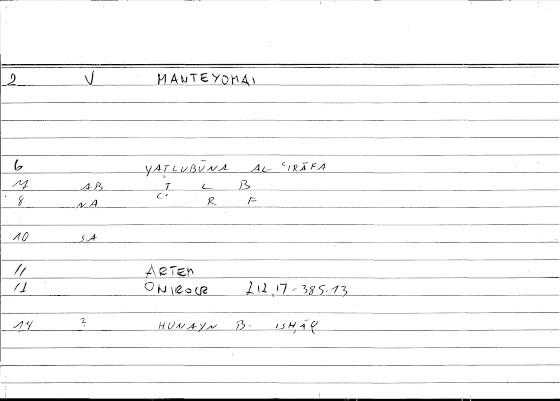 2 V MANTEYOMAI
6 YATLUBŪNA AL-ʿIRĀFA
7 AB Ṭ L B
8 NA ʿ R F
10 SA
11 ARTEM
12 ONIROCR 212,17-385.13
14 ? HUNAYN B. ISḤĀQ